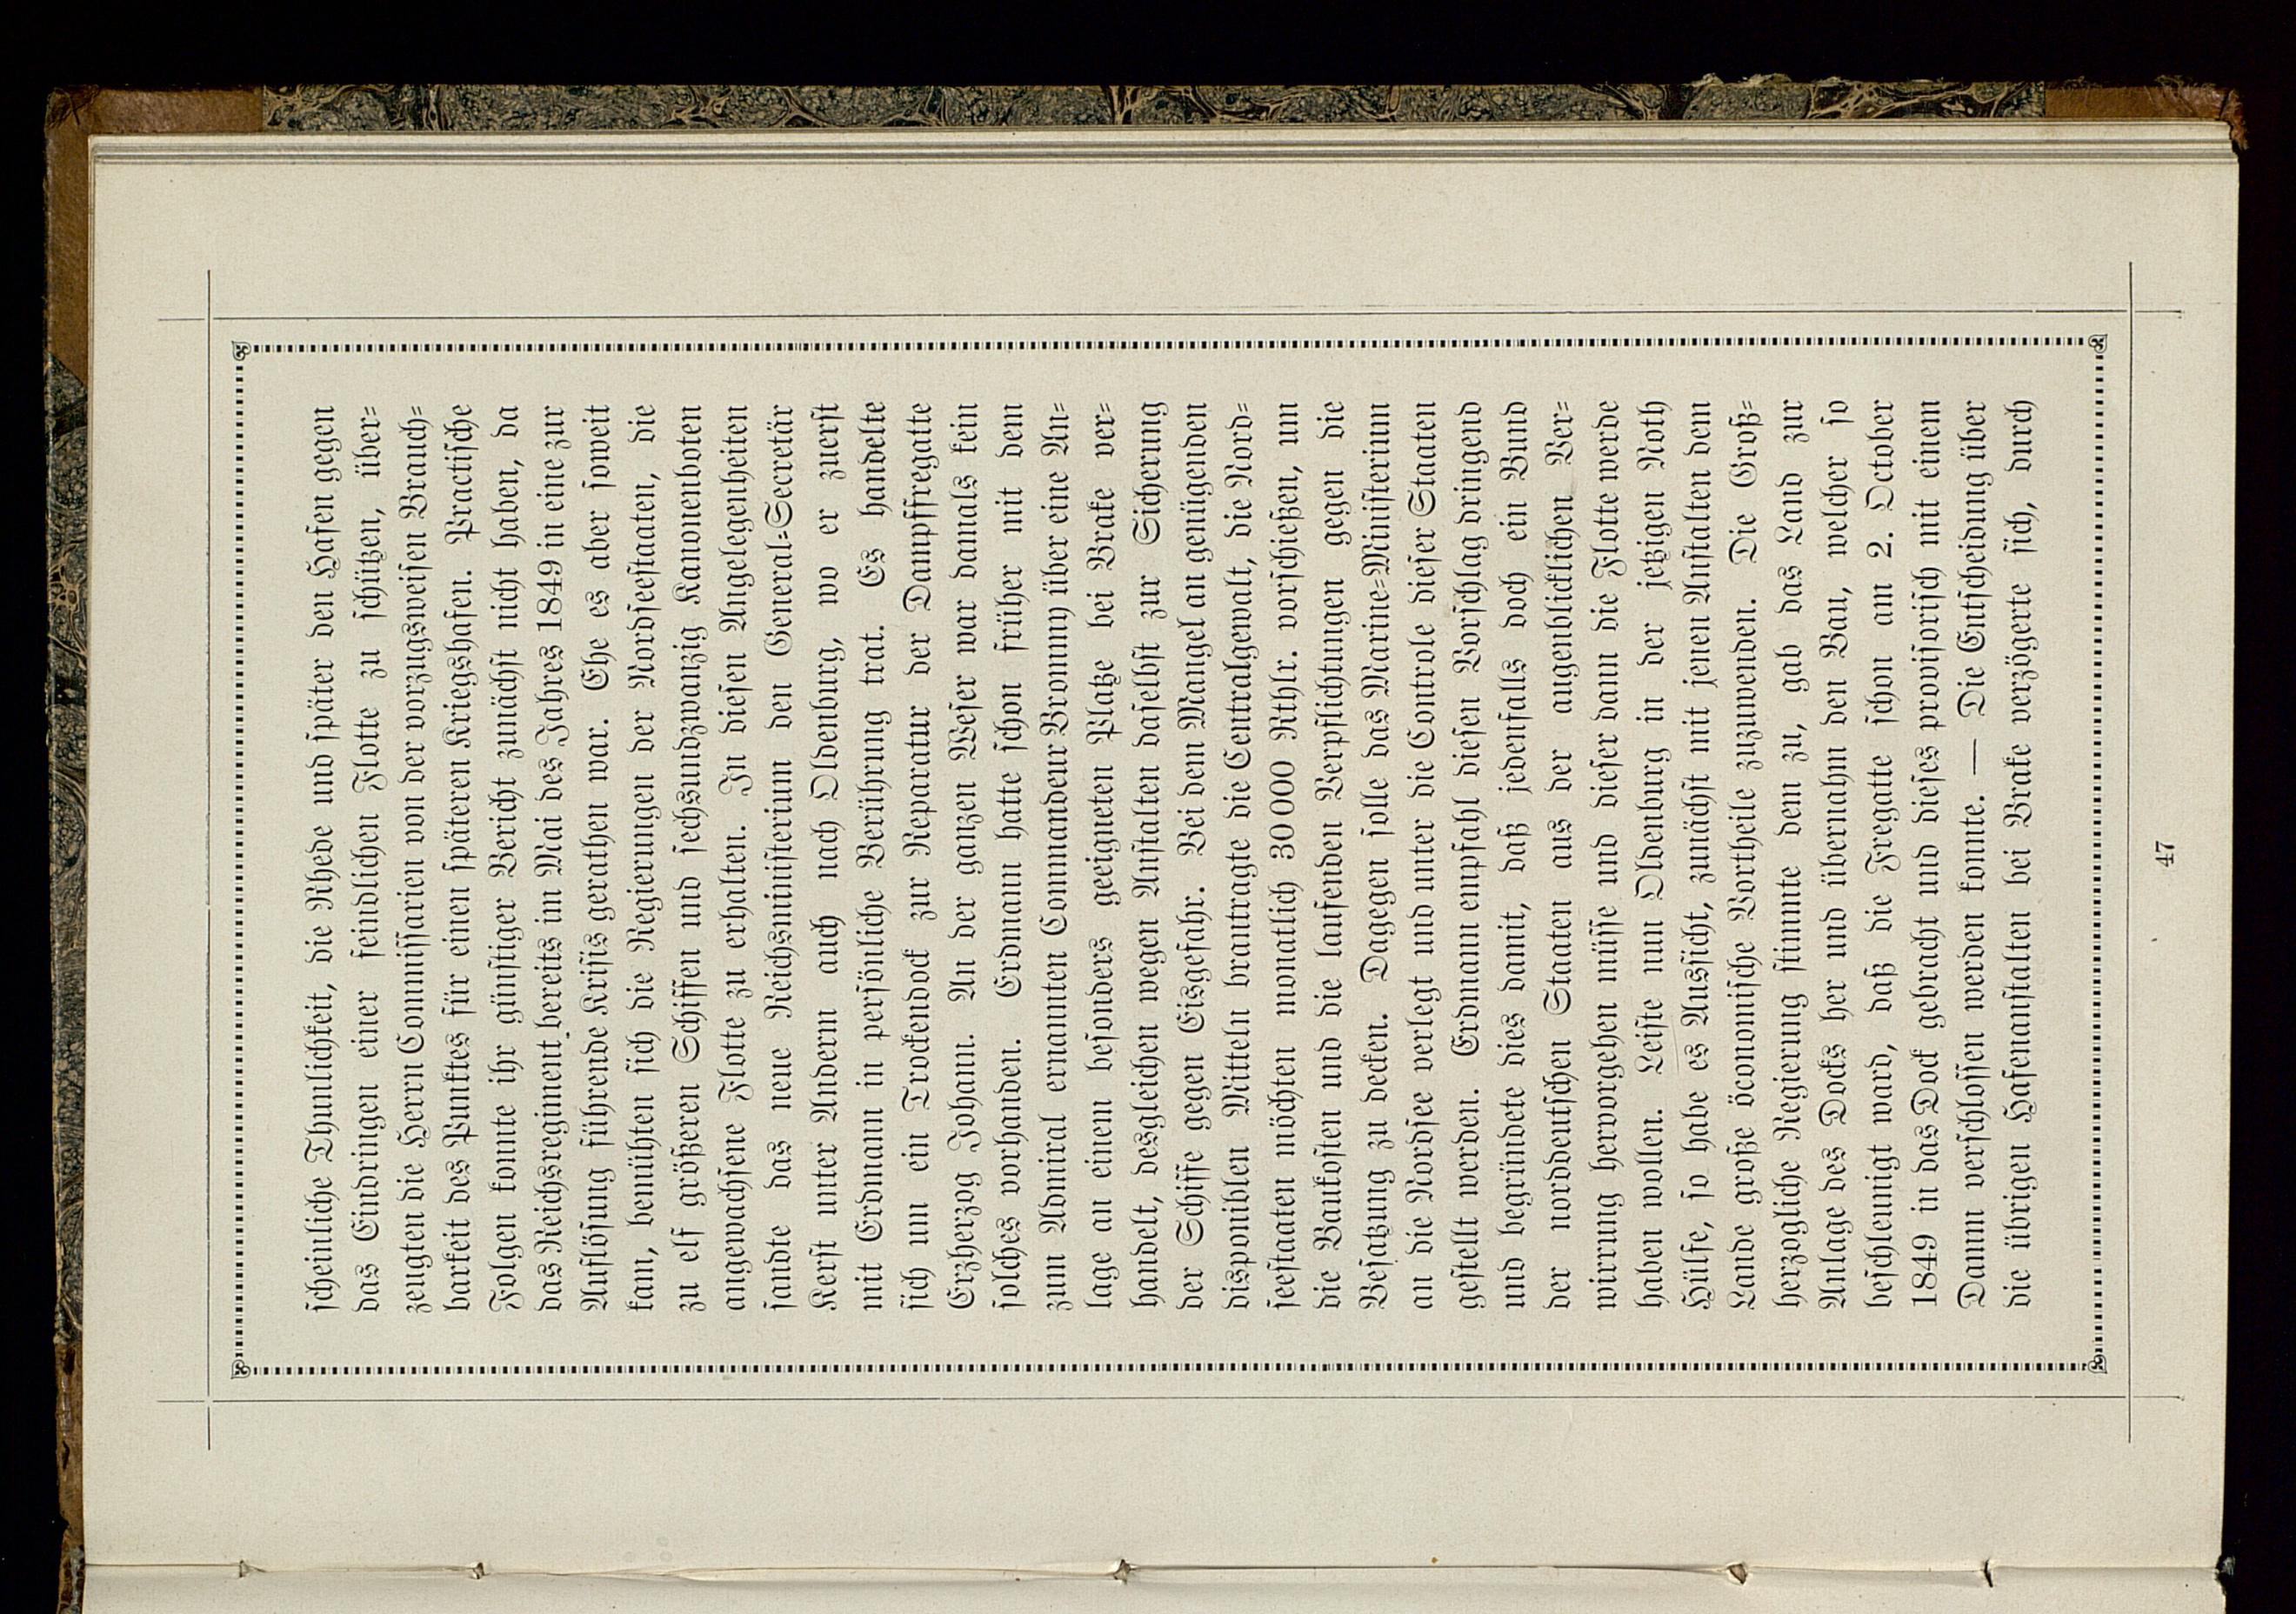 scheinliche Thunlichkeit, die Rhede und später den Hafen gegen
das Eindringen einer feindlichen Flotte zu schützen, über-
zeugten die Herrn Commissarien von der vorzugsweisen Brauch-
barkeit des Punktes für einen späteren Kriegshafen. Practische
Folgen konnte ihr günstiger Bericht zunächst nicht haben, da
das Reichsregiment bereits im Mai des Jahres 1849 in eine zur
Auflösung führende Krisis gerathen war. Ehe es aber soweit
kam, bemühten sich die Regierungen der Nordseestaaten, die
zu elf größeren Schiffen und sechsundzwanzig Kanonenboten
angewachsene Flotte zu erhalten. In diesen Angelegenheiten
sandte das neue Reichsministerium den General-Secretär
Kerst unter Anderm auch nach Oldenburg, wo er zuerst
mit Erdmann in persönliche Berührung trat. Es handelte
sich um ein Trockendock zur Reparatur der Dampffregatte
Erzherzog Johann. An der ganzen Weser war damals kein
solches vorhanden. Erdmann hatte schon früher mit dem
zum Admiral ernannten Commandeur Brommy über eine An-
lage an einem besonders geeigneten Platze bei Brake ver-
handelt, desgleichen wegen Anstalten daselbst zur Sicherung
der Schiffe gegen Eisgefahr. Bei dem Mangel an genügenden
disponiblen Mitteln brantragte die Centralgewalt, die Nord-
seestaaten möchten monatlich 30000 Rthlr. vorschießen, um
die Baukosten und die laufenden Verpflichtungen gegen die
Besatzung zu decken. Dagegen solle das Marine-Ministerium
an die Nordsee verlegt und unter die Controle dieser Staaten
gestellt werden. Erdmann empfahl diesen Vorschlag dringend
und begründete dies damit, daß jedenfalls doch ein Bund
der norddeutschen Staaten aus der augenblicklichen Ver-
wirrung hervorgehen müsse und dieser dann die Flotte werde
haben wollen. Leiste nun Oldenburg in der jetzigen Noth
Hülfe, so habe es Aussicht, zunächst mit jenen Anstalten dem
Lande große öconomische Vortheile zuzuwenden. Die Groß-
herzogliche Regierung stimmte dem zu, gab das Land zur
Anlage des Docks her und übernahm den Bau, welcher so
beschleunigt ward, daß die Fregatte schon am 2. October
1849 in das Dock gebracht und dieses provisorisch mit einem
Damm verschlossen werden konnte. — Die Entscheidung über
die übrigen Hafenanstalten bei Brake verzögerte sich, durch
47